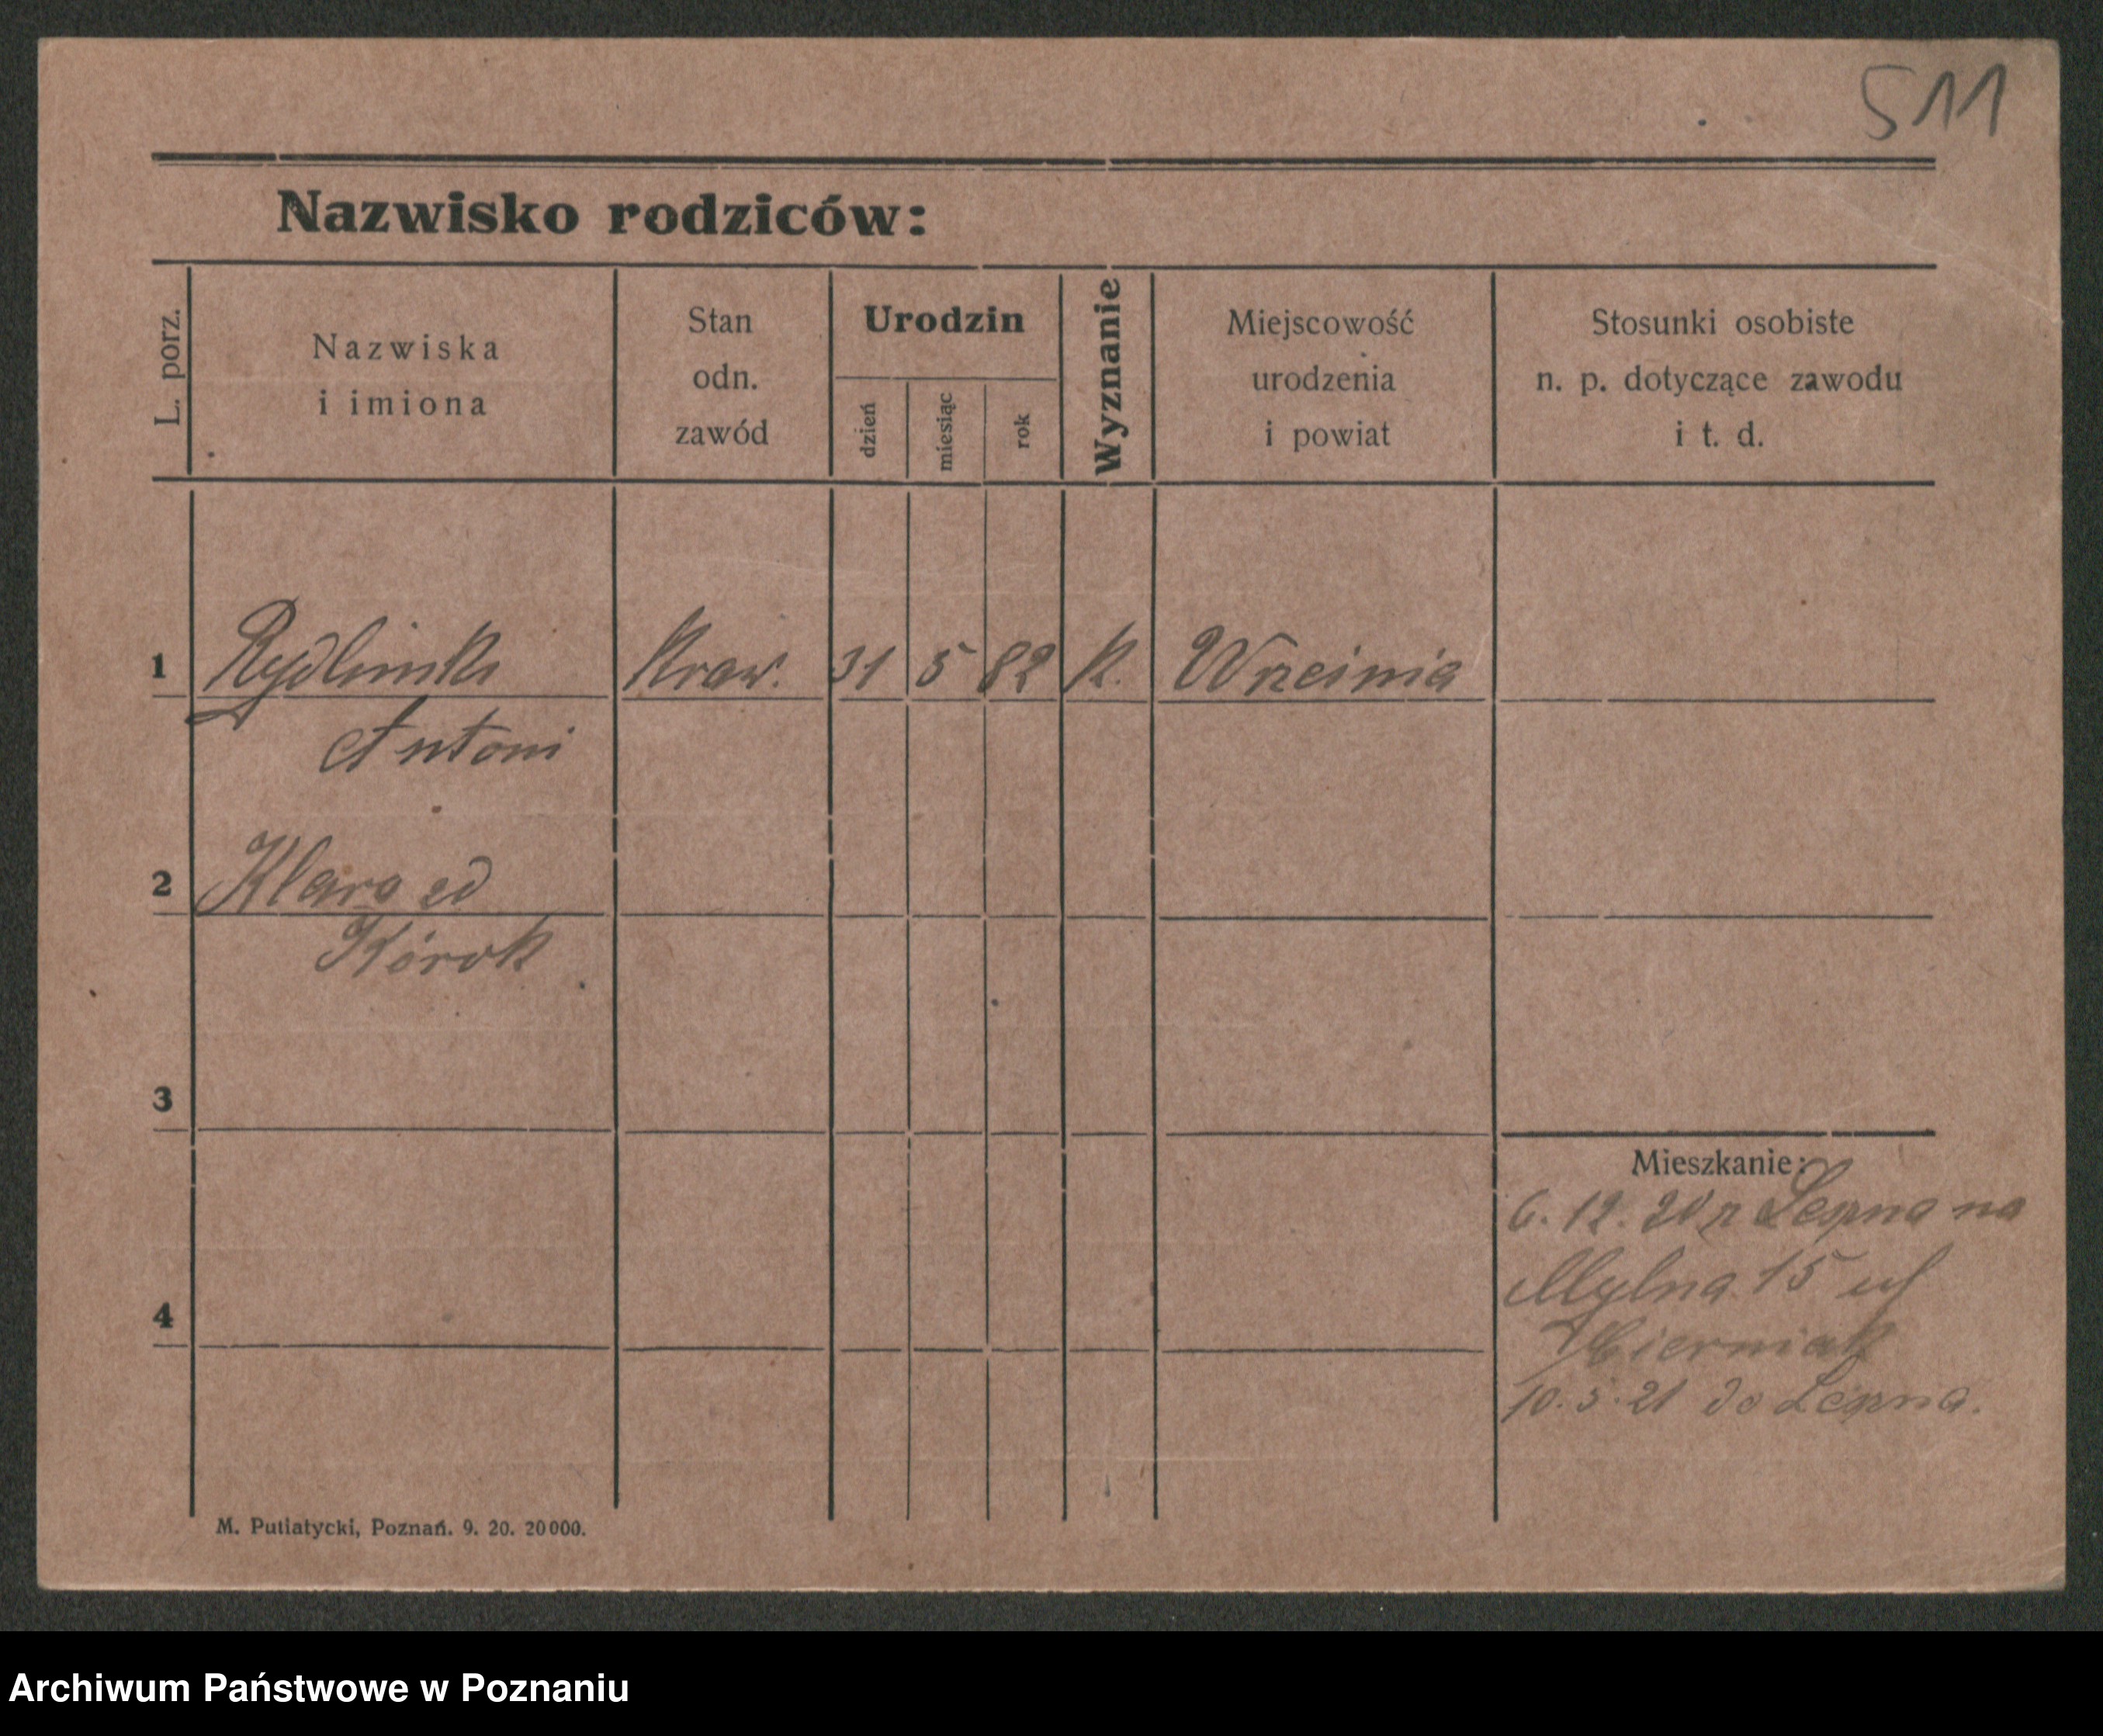 511
Nazwisko rodziców:
L. porz.
Nazwiska
i imiona
Stan
odn.
zawód
Urodzin
dzień
miesiąc
rok
Wyznanie
Miejscowość
urodzenia
i powiat
Stosunki osobiste
n. p. dotyczące zawodu
i t. d.
1 Rydlinski Kraw. 31 5 82 K. Wrzeinia
Antoni
2 Klara zd
3
Mieszkanie:
6. 12. 20 z Leszna na
Mylna 15
Cierniak
4
10. 5. 21 do Leszna.
M. Putiatycki, Poznań. 9. 20. 20000.
Archiwum Państwowe w Poznaniu